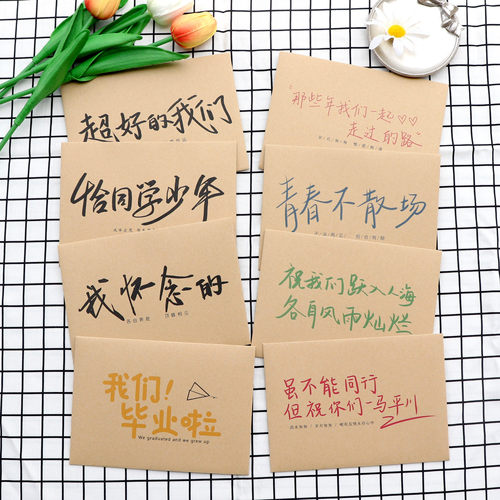 超好的我们
恰同学少年
我怀念的
我们!
毕业啦
We graduated and we grew up
"那些年我们一起♡♡
走过的路"
青春不散场
祝我们跃入人海
各自风雨灿烂
虽不能同行
但祝你们一马平川